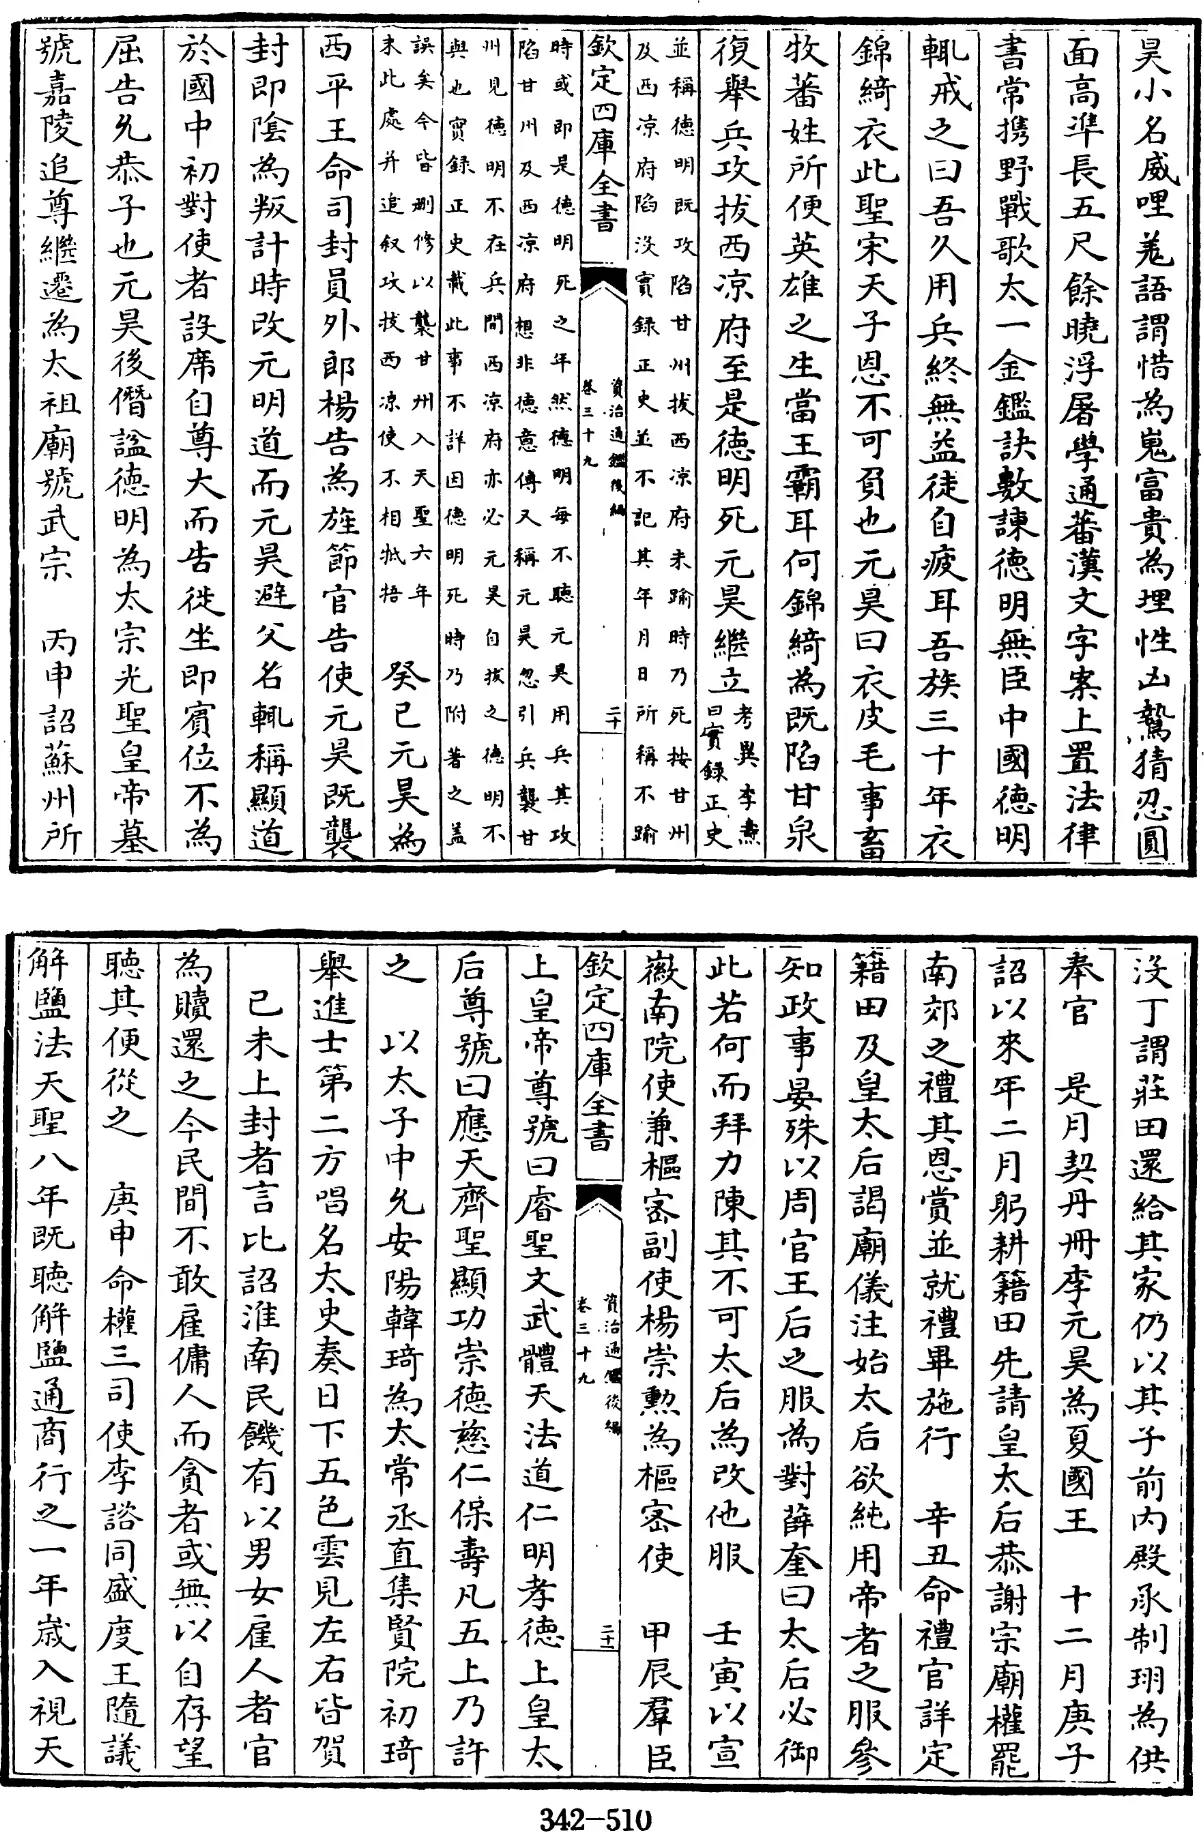 昊小名威哩羌語謂惜為嵬富貴為埋性凶鷙猜忍圓
面高凖長五尺餘曉浮屠學通蕃漢文字案上置法律
書常攜野戰歌太一金鑑訣數諫德明無臣中國德明
輒戒之曰吾久用兵終無益徒自疲耳吾族三十年衣
錦綺衣此聖宋天子恩不可負也元昊曰衣皮毛事畜
牧蕃姓所便英雄之生當王霸耳何錦綺為既陷甘泉
復舉兵攻拔西凉府至是德明死元昊繼立
考異李燾
曰實録正史
並稱德明既攻陷甘州拔西凉府未踰時乃死按甘州
及西凉府陷沒實録正史並不記其年月日所稱不踰
欽定四庫全書
資治通鑑後編
卷三十九
二十
時或即是德明死之年然德明每不聽元昊用兵其攻
陷甘州及西凉府想非德意傳又稱元昊忽引兵襲甘
州見德明不在兵間西凉府亦必元昊自拔之德明不
與也實録正史載此事不詳因德明死時乃附著之盖
誤矣今皆刪修以襲甘州入天聖六年
末此處并追叙攻拔西凉使不相牴牾
癸已元昊為
西平王命司封員外郎楊告為旌節官告使元昊既襲
封即陰為叛計時改元明道而元昊避父名輒稱顯道
於國中初對使者設席自尊大而告徙坐即賓位不為
屈告允恭子也元昊後僭諡德明為太宗光聖皇帝墓
號嘉陵追尊繼遷為太祖廟號武宗　丙申詔蘇州所
沒丁謂莊田還給其家仍以其子前内殿承制珝為供
奉官　是月契丹冊李元昊為夏國王　十二月庚子
詔以來年二月躬耕籍田先請皇太后恭謝宗廟權罷
南郊之禮其恩賞並就禮畢施行　辛丑命禮官詳定
籍田及皇太后謁廟儀注始太后欲純用帝者之服參
知政事晏殊以周官王后之服為對薛奎曰太后必御
此若何而拜力陳其不可太后為改他服　壬寅以宣
徽南院使兼樞密副使楊崇勲為樞密使　甲辰羣臣
欽定四庫全書
資治通鑑後編
卷三十九
二十一
上皇帝尊號曰睿聖文武體天法道仁明孝德上皇太
后尊號曰應天齊聖顯功崇德慈仁保壽凡五上乃許
之　以太子中允安陽韓琦為太常丞直集賢院初琦
舉進士第二方唱名太史奏日下五色雲見左右皆賀
已未上封者言比詔淮南民饑有以男女雇人者官
為贖還之今民間不敢雇傭人而貪者或無以自存望
聽其便從之　庚申命權三司使李諮同盛度王隨議
解鹽法天聖八年既聽解鹽通商行之一年歳入視天
342-510